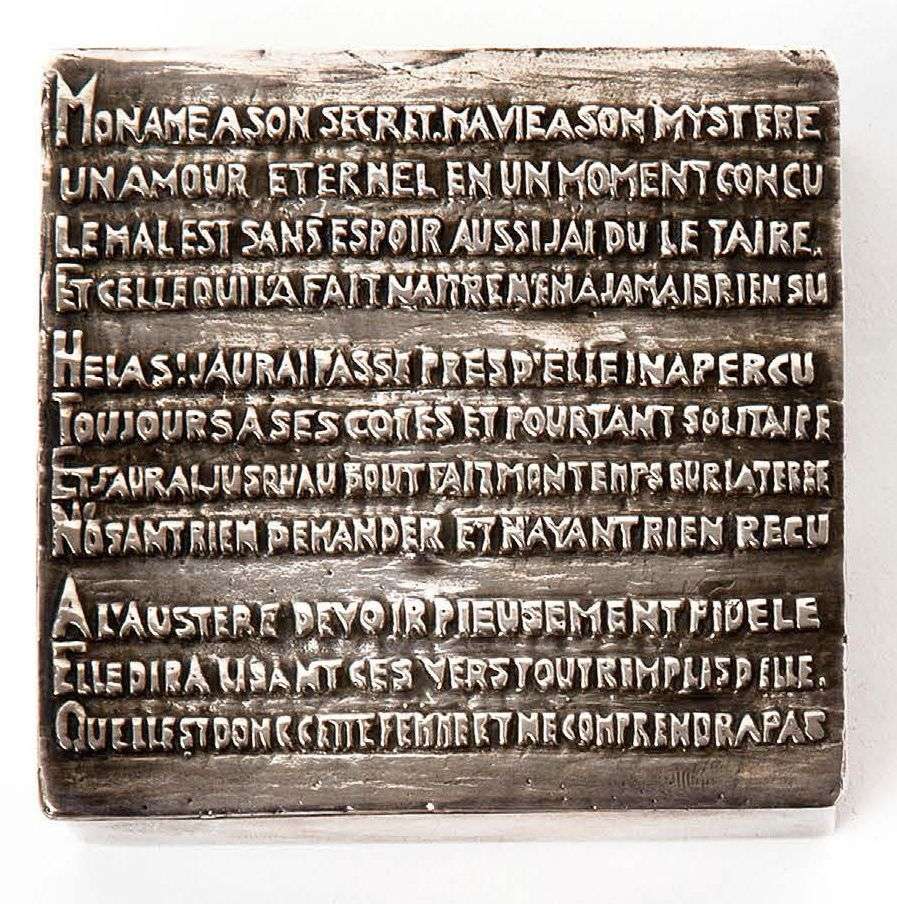 MON AME A SON SECRET. MA VIE A SON MYSTERE
UN AMOUR ETERNEL EN UN MOMENT CONCU
LE MAL EST SANS ESPOIR AUSSI JAI DU LE TAIRE.
ET CELLE QUI L'A FAIT NAITRE N'EN A JAMAIS RIEN SU
HELAS! J'AURAI PASSE PRES D'ELLE INAPERCU
TOUJOURS A SES COTES ET POURTANT SOLITAIRE
ET J'AURAI JUSQU'AU BOUT FAIT MON TEMPS SUR LA TERRE
N'OSANT RIEN DEMANDER ET N'AYANT RIEN RECU
A L'AUSTERE DEVOIR PIEUSEMENT FIDELE
ELLE DIRA LISANT CES VERS TOUT REMPLIS D ELLE.
QUELLE EST DONC CETTE FEMME ET NE COMPRENDRA PAS